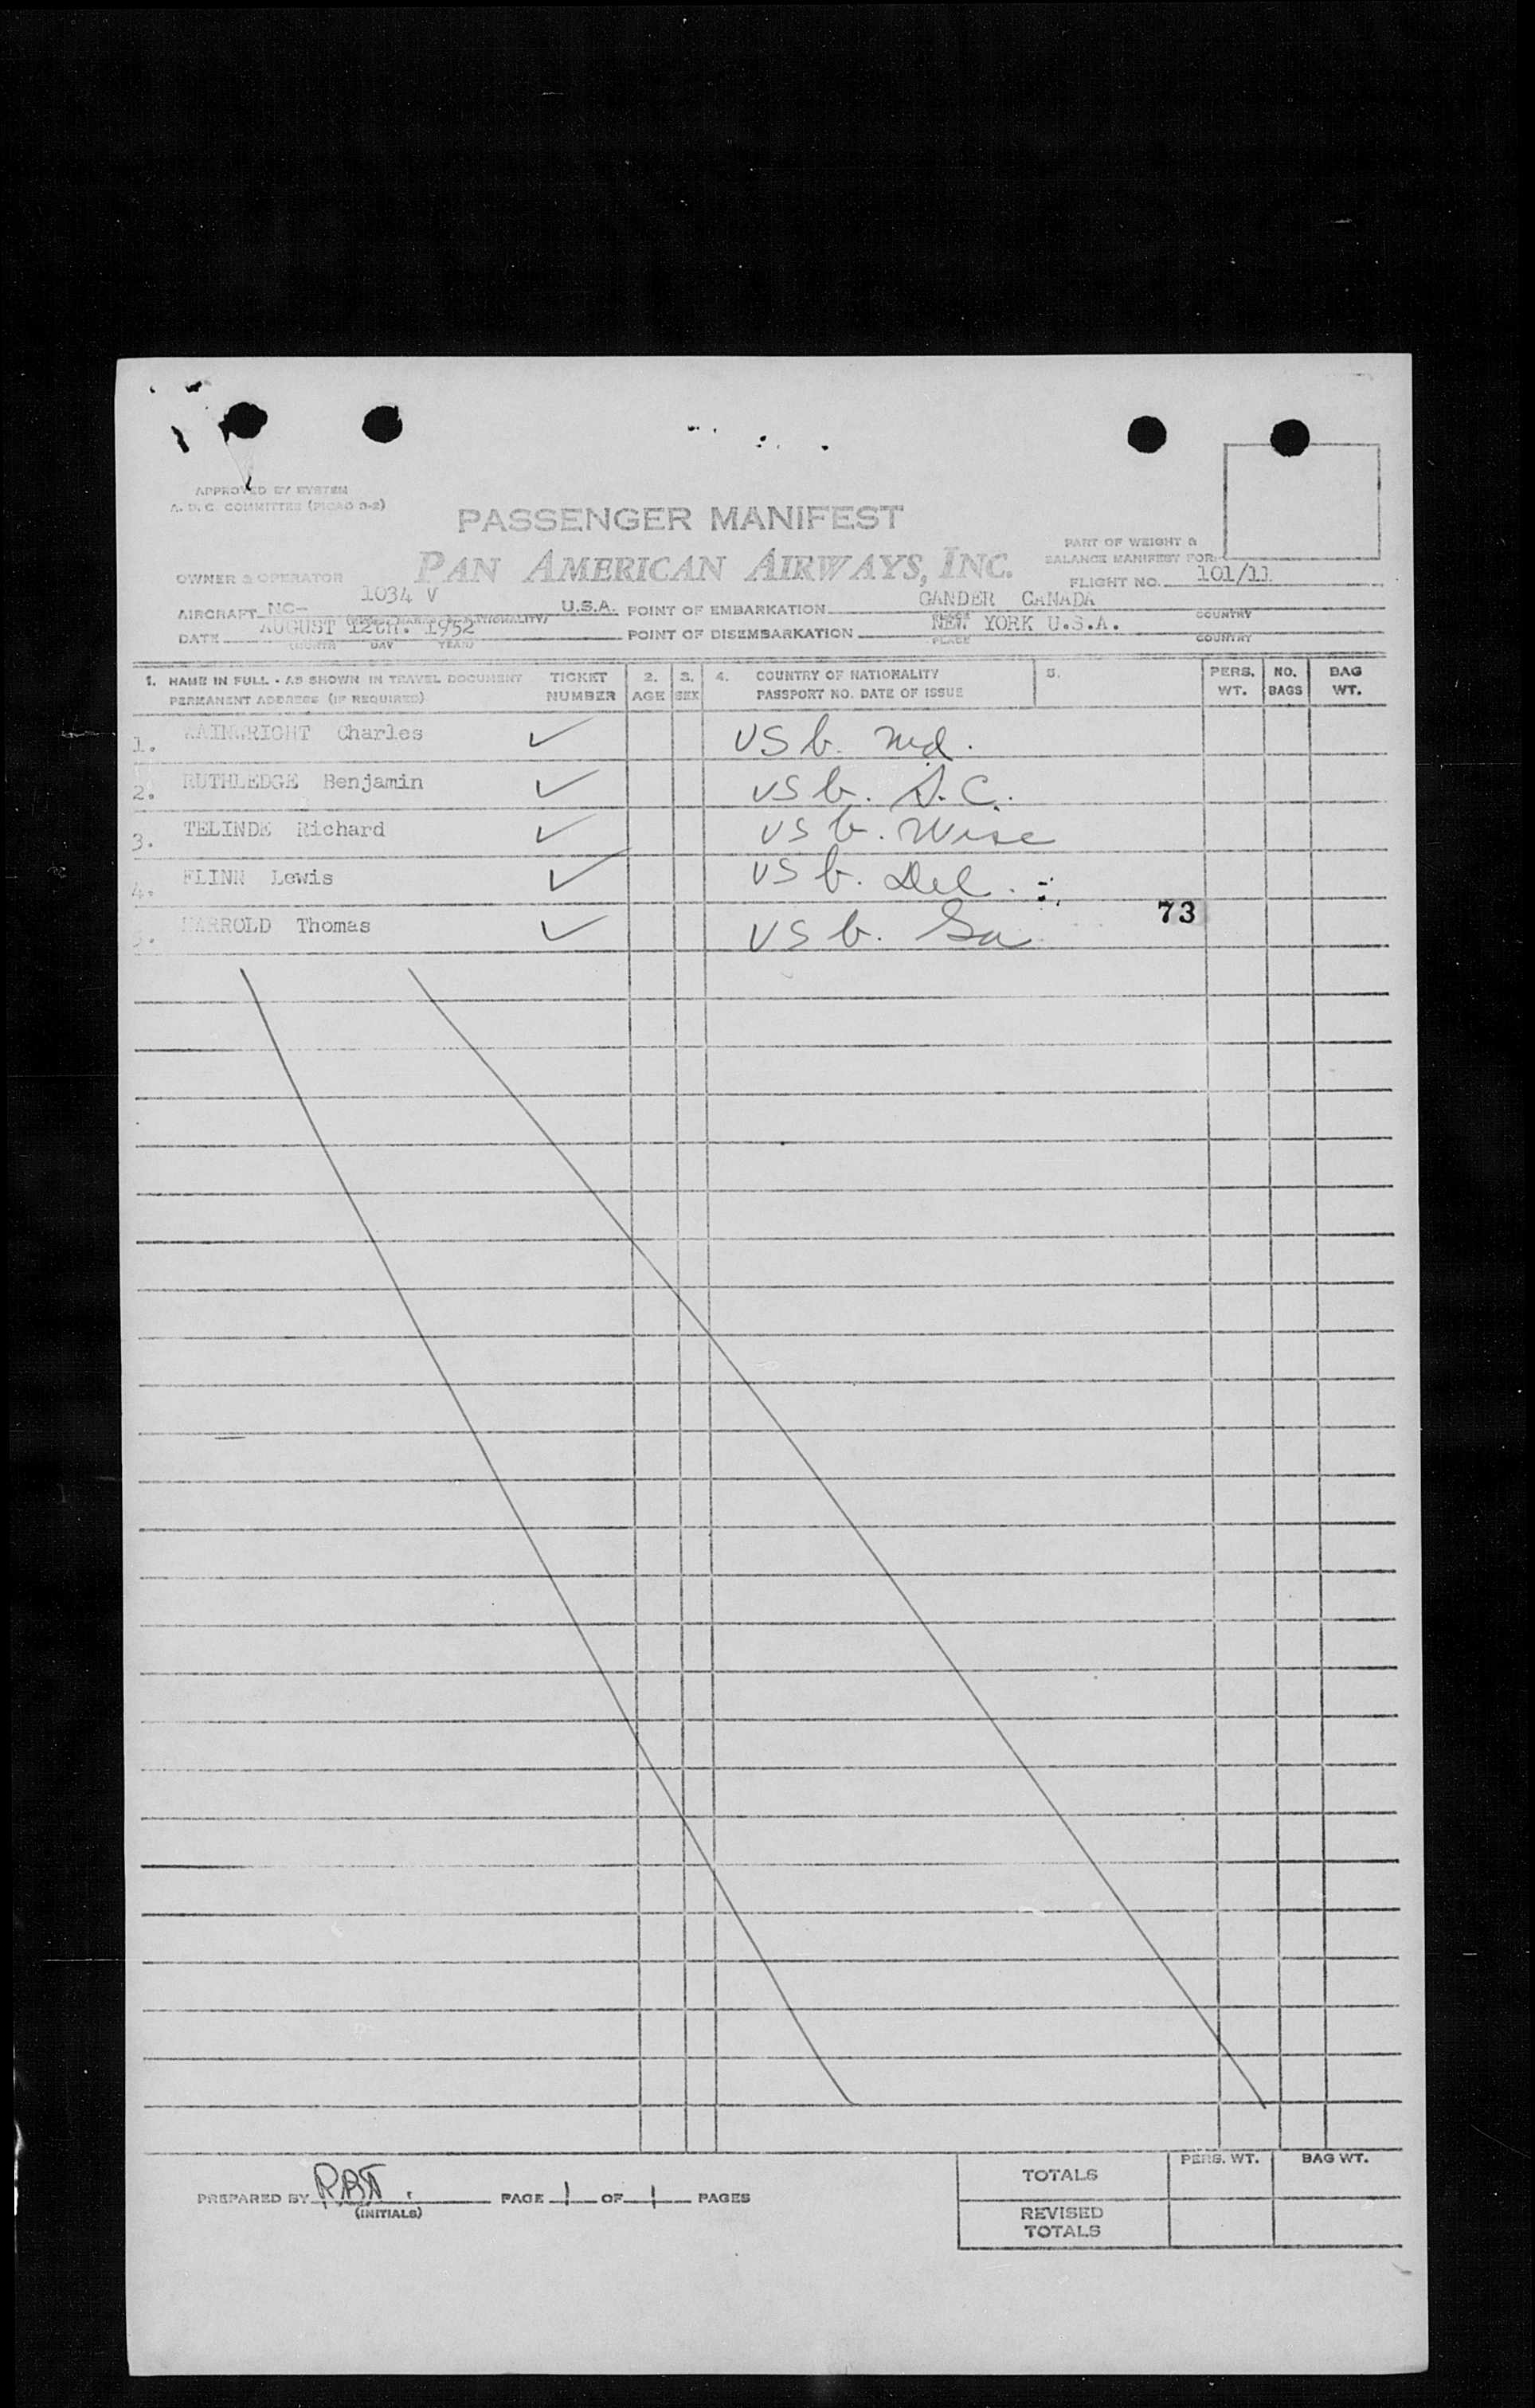 APPROVED BY SYSTEM
A. D. C. COMMITTEE (PICAO D-2)
PASSENGER MANIFEST
PART OF WEIGHT &
BALANCE MANIFEST FOR:
OWNER & OPERATOR PAN AMERICAN AIRWAYS, INC.
FLIGHT NO. 101/11
AIRCRAFT NC- 1034 V U.S.A. POINT OF EMBARKATION GANDER CANADA
PLACE COUNTRY
DATE AUGUST 12th. 1952 POINT OF DISEMBARKATION NEW YORK U.S.A.
(MONTH DAY YEAR) PLACE COUNTRY
1. NAME IN FULL - AS SHOWN IN TRAVEL DOCUMENT TICKET 2. 3. 4. COUNTRY OF NATIONALITY 5. PERS. NO. BAG
PERMANENT ADDRESS (IF REQUIRED) NUMBER AGE SEX PASSPORT NO. DATE OF ISSUE WT. BAGS WT.
1. WAINWRIGHT Charles ✓ US b. Md.
2. RUTHLEDGE Benjamin ✓ US b. S.C.
3. TELINDE Richard ✓ US b. Wisc
4. FLINN Lewis ✓ US b. Del.
5. HARROLD Thomas ✓ US b. Ga 73
PERS. WT. BAG WT.
TOTALS
PREPARED BY PAGE 1 OF 1 PAGES
(INITIALS)
REVISED
TOTALS